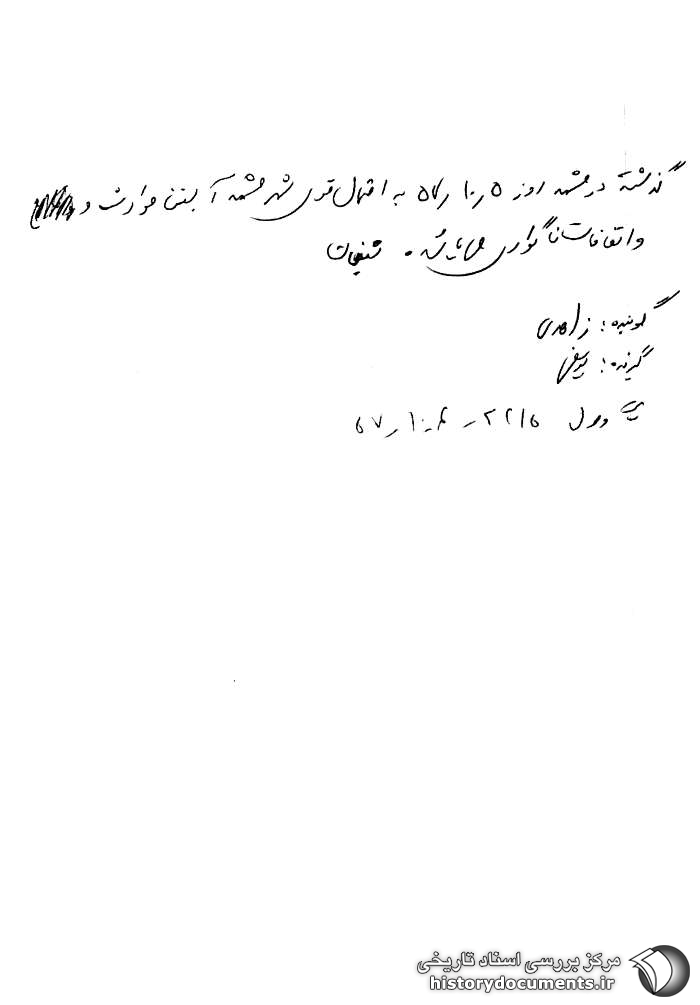 گذشته در مشهد روز ۵ر۱۰ر۵۷ به احتمال قوی شهر مشهد آبستن حوادث و
و اتفاقات ناگواری می‌باشد. شفیعیان
گوینده: زاهدی
گیرنده: یوسفی
وصول
مرکز بررسی اسناد تاریخی
historydocuments.ir